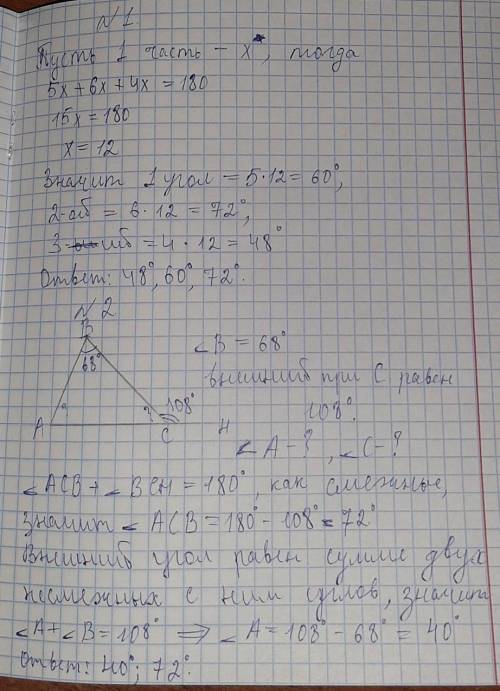 №1
Пусть 1 часть – x°, тогда
5x+6x+4x=180
15x=180
x=12
Значит 1 угол = 5·12=60°,
2-ой = 6·12=72°,
3-ий =4·12=48°
Ответ: 48°, 60°, 72°.
№2
B
68°
A ? ? 108° C H
∠B=68°
внешний при C равен
108°.
∠A-?, ∠C-?
∠ACB+∠BCH=180°, как смежные,
значит ∠ACB=180°-108°=72°
Внешний угол равен сумме двух
несмежных с ним углов, значит
∠A+∠B=108° ⇒ ∠A=108°-68°=40°
Ответ: 40°; 72°.